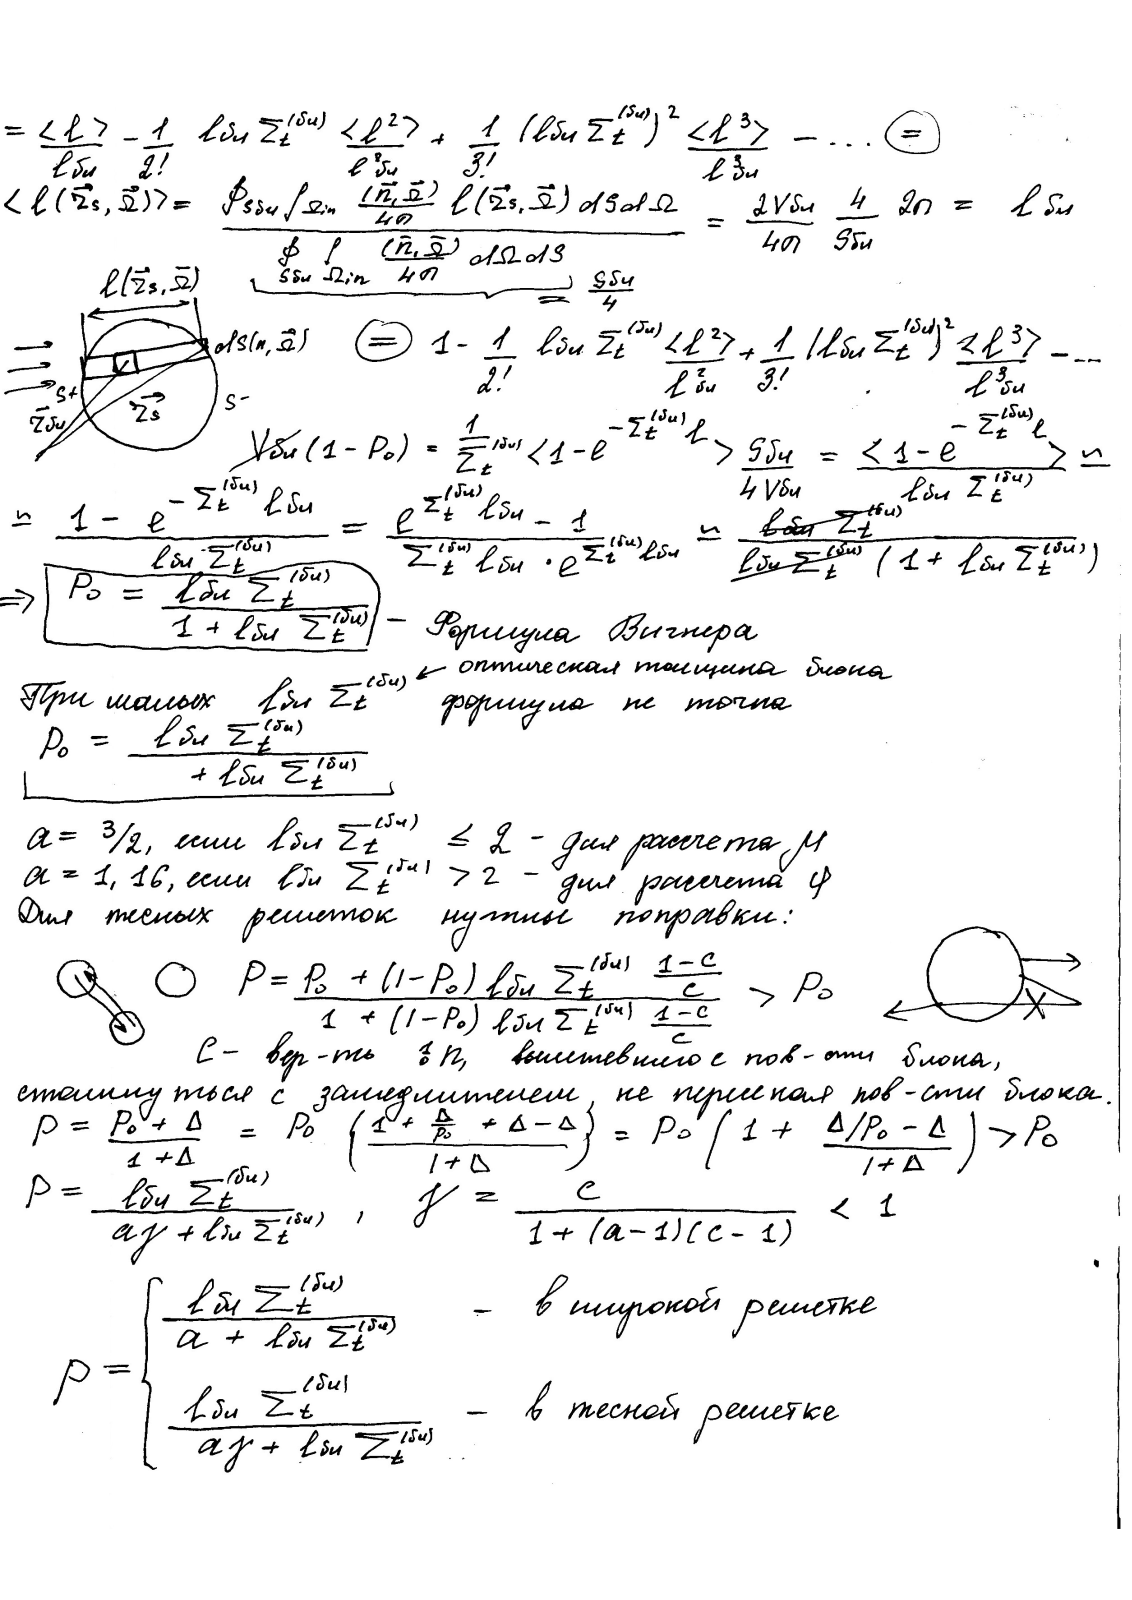 = <l>/lбл - 1/2! lбл Σt^(бл) <l²>/l²бл + 1/3! (lбл Σt^(бл))² <l³>/l³бл - ... (=)
<l(r⃗s, Ω⃗)> = ∮Sбл ∫Ωin (n⃗,Ω⃗)/4π l(r⃗s, Ω⃗) dS dΩ / ∮Sбл ∫Ωin (n⃗,Ω⃗)/4π dΩ dS = 2Vбл/4π 4/Sбл 2π = lбл
= Sбл/4
l(r⃗s, Ω⃗)
dS(n,Ω⃗)
S+
S-
r⃗бл
r⃗s
(=) 1 - 1/2! lбл Σt^(бл) <l²>/l²бл + 1/3! (lбл Σt^(бл))² <l³>/l³бл - ...
Vбл (1-P₀) = 1/Σt^(бл) <1-e^(-Σt^(бл) l)> Sбл/4Vбл = <1-e^(-Σt^(бл) l)>/(lбл Σt^(бл)) ≃
≃ (1-e^(-Σt^(бл) lбл))/(lбл·Σt^(бл)) = (e^(Σt^(бл) lбл) - 1)/(Σt^(бл) lбл · e^(Σt^(бл) lбл)) ≃ lбл Σt^(бл)/(lбл Σt^(бл) (1 + lбл Σt^(бл)))
=> P₀ = lбл Σt^(бл)/(1 + lбл Σt^(бл)) - Формула Вигнера
При малых lбл Σt^(бл) ← оптическая толщина блока
формула не точна
P₀ = lбл Σt^(бл)/( + lбл Σt^(бл))
a = 3/2, если lбл Σt^(бл) ≤ 2 - для рассчета μ
a = 1,16, если lбл Σt^(бл) > 2 - для рассчета φ
Для тесных решеток нужны поправки:
P = (P₀ + (1-P₀) lбл Σt^(бл) (1-c)/c)/(1 + (1-P₀) lбл Σt^(бл) (1-c)/c) > P₀
C - вер-ть n, вылетевшего с пов-сти блока,
столкнуться с замедлителем, не пересекая пов-сти блока.
P = (P₀ + Δ)/(1 + Δ) = P₀ {(1 + Δ/P₀ + Δ - Δ)/(1+Δ)} = P₀ (1 + (Δ/P₀ - Δ)/(1+Δ)) > P₀
P = lбл Σt^(бл)/(aγ + lбл Σt^(бл)), γ = c/(1 + (a-1)(c-1)) < 1
P = { lбл Σt^(бл)/(a + lбл Σt^(бл)) - в широкой решетке
lбл Σt^(бл)/(aγ + lбл Σt^(бл)) - в тесной решетке